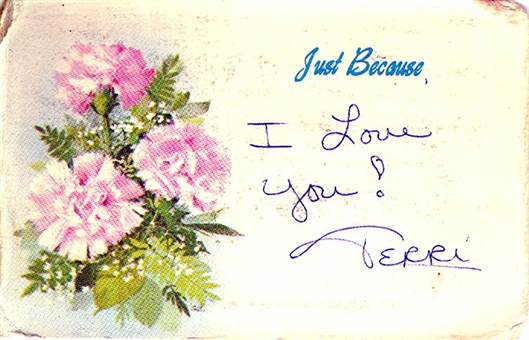 Just Because,
I Love
you!
Terri